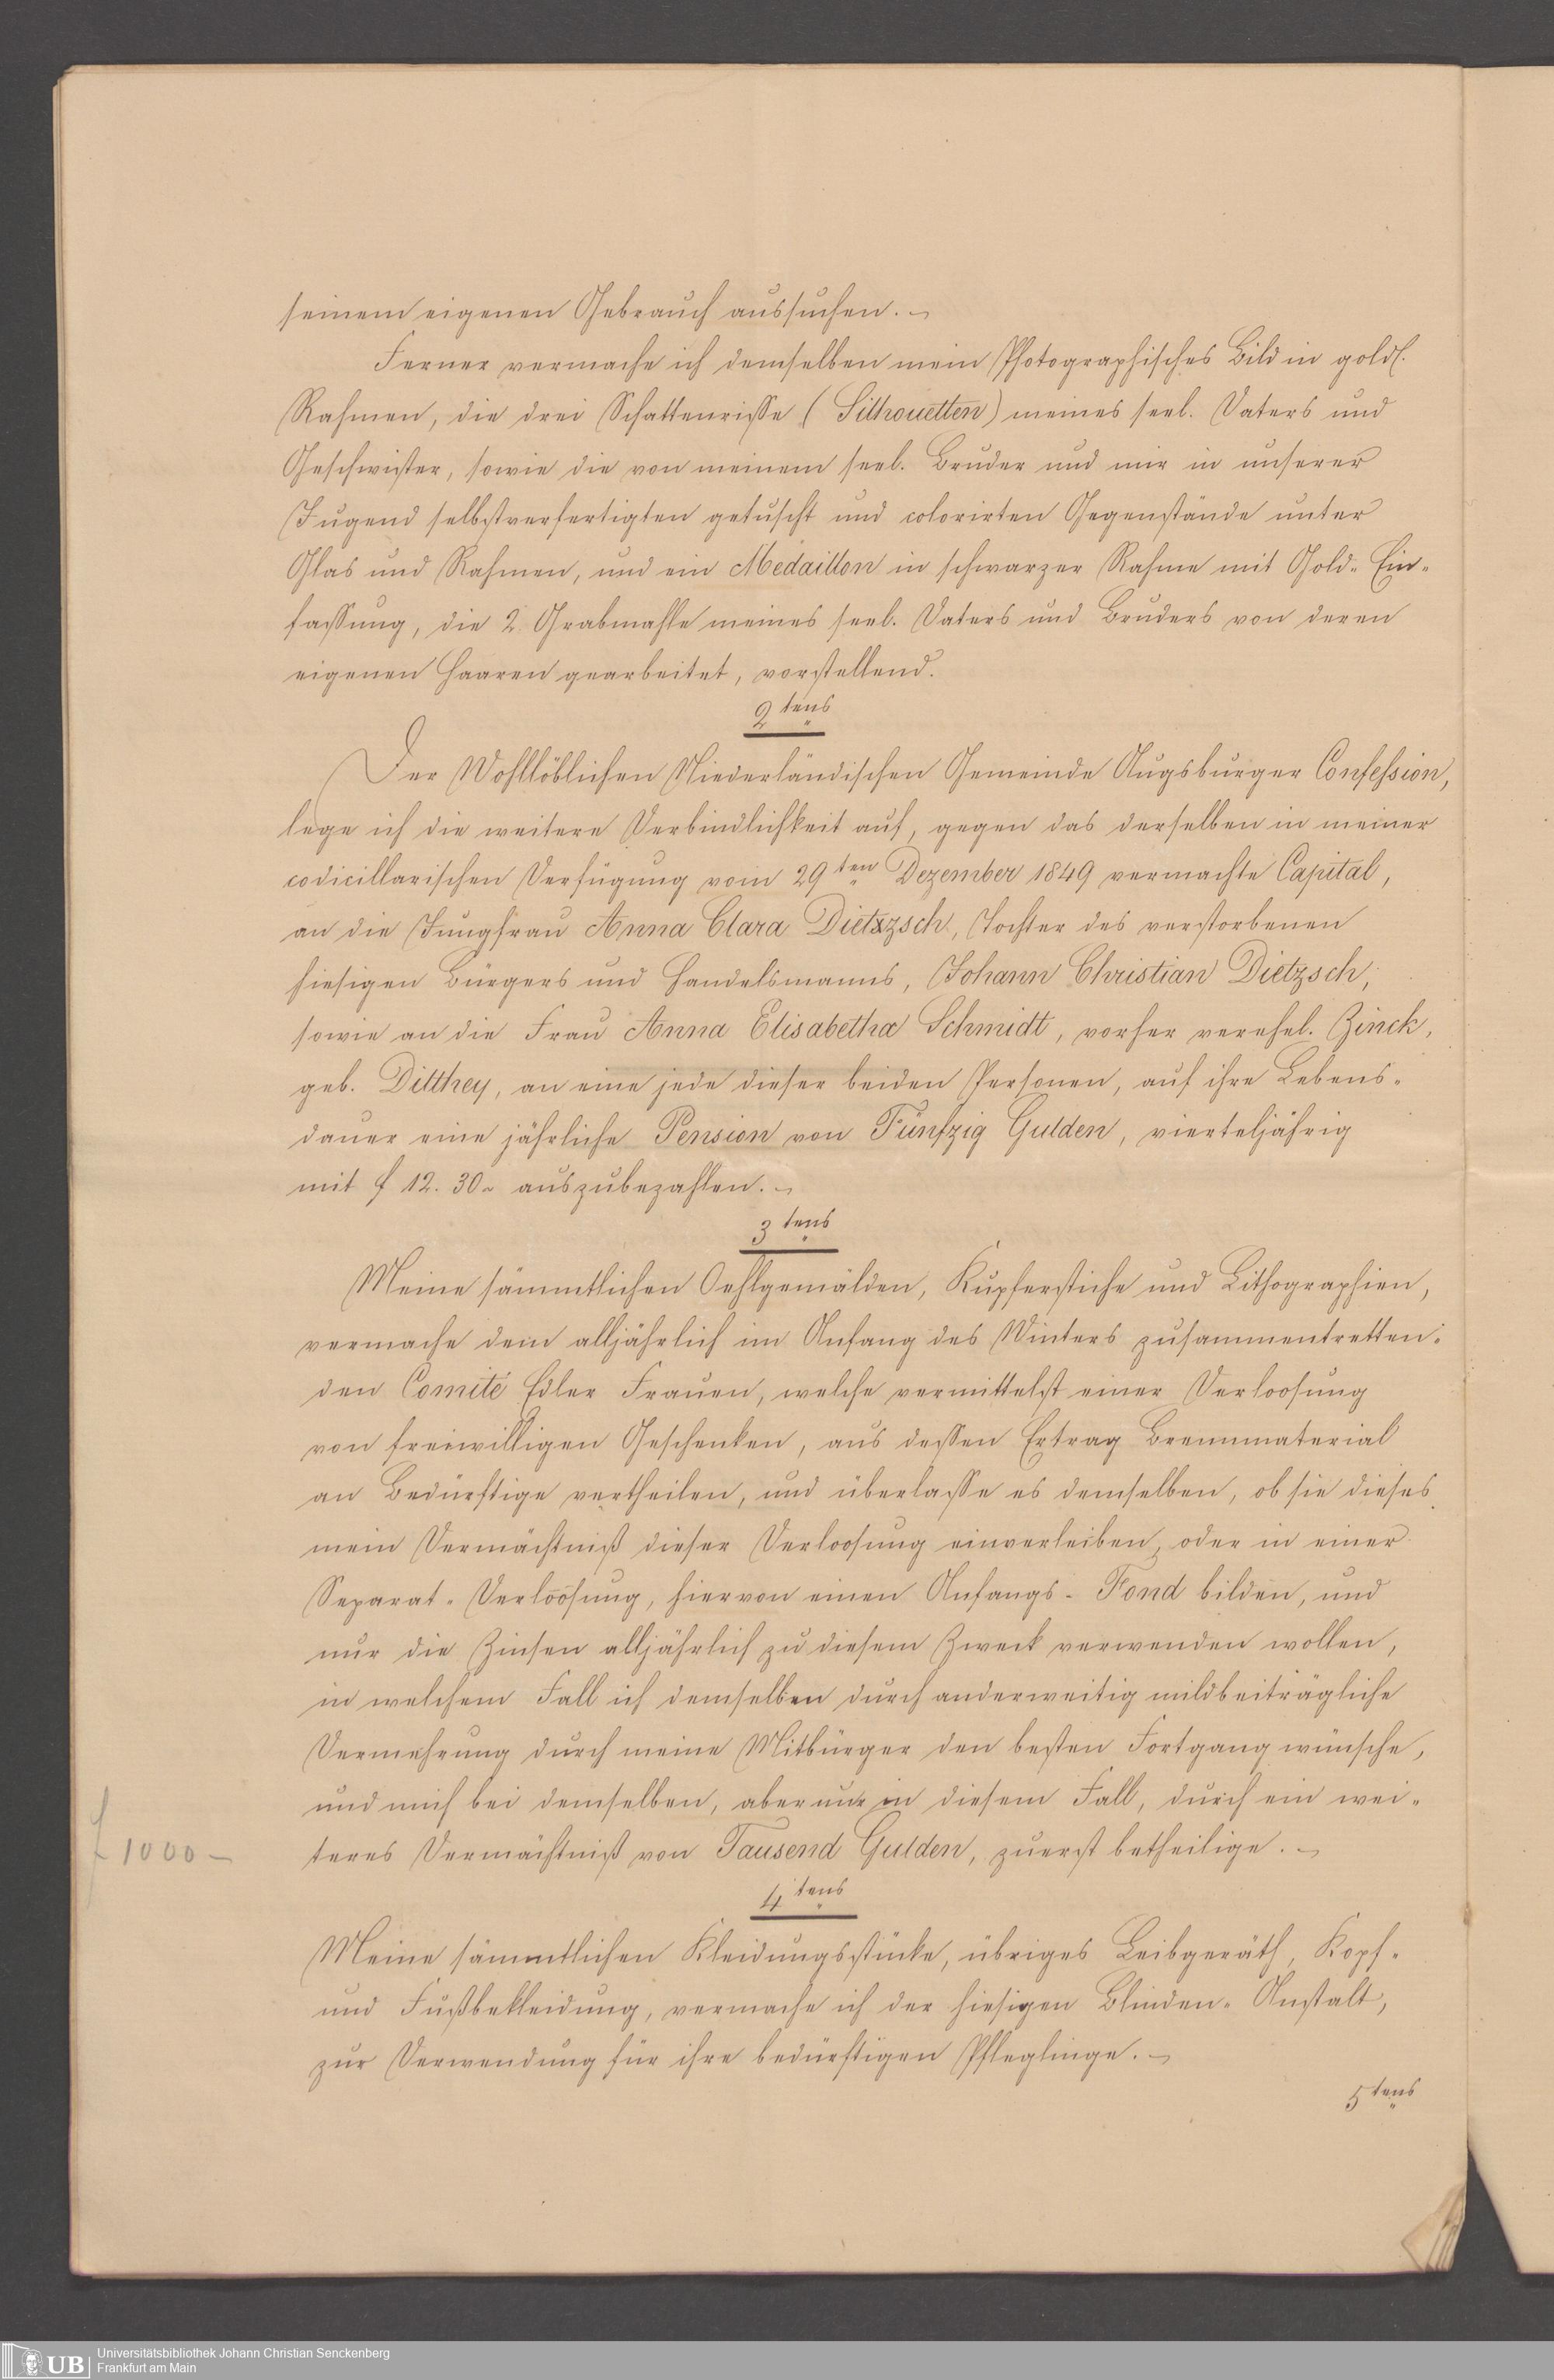 seinem eigenen Gebrauch aussuchen. –
Ferner vermache ich demselben mein Photographisches Bild in gold.
Rahmen, die drei Schattenrisse (Silhouetten) meines seel. Vaters und
Geschwister, sowie die von meinem seel. Bruder und mir in unserer
Jugend selbstverfertigten getuscht und colorirten Gegenstände unter
Glas und Rahmen, und ein Medaillon in schwarzer Rahme mit Gold-Ein-
fassung, die 2 Grabmahle meines seel. Vaters und Bruders von deren
eigenen Haaren gearbeitet, vorstellend.
2tens
Der Wohllöblichen Niederländischen Gemeinde Augsburger Confession,
lege ich die weitere Verbindlichkeit auf, gegen das derselben in meiner
codicillarischen Verfügung vom 29ten Dezember 1849 vermachte Capital,
an die Jungfrau Anna Clara Dietzsch, Tochter des verstorbenen
hiesigen Bürgers und Handelsmanns, Johann Christian Dietzsch,
sowie an die Frau Anna Elisabetha Schmidt, vorher verehel. Zinck,
geb. Ditthey, an eine jede dieser beiden Personen, auf ihre Lebens-
dauer eine jährliche Pension von Fünfzig Gulden, vierteljährig
mit f 12. 30 auszubezahlen. –
3tens
Meine sämmtlichen Oehlgemälden, Kupferstiche und Lithographien,
vermache dem alljährlich im Anfang des Winters zusammentretten-
den Comité Edler Frauen, welche vermittelst einer Verloosung
von freiwilligen Geschenken, aus dessen Ertrag Brennmaterial
an Bedürftige vertheilen, und überlasse es demselben, ob sie dieses
mein Vermächtniß dieser Verloosung einverleiben, oder in einer
Separat-Verloosung, hiervon einen Anfangs-Fond bilden, und
nur die Zinsen alljährlich zu diesem Zweck verwenden wollen,
in welchem Fall ich demselben durch anderweitig mildbeiträgliche
Vermehrung durch meine Mitbürger den besten Fortgang wünsche,
und mich bei demselben, aber nur in diesem Fall, durch ein wei-
f 1000 –
teres Vermächtniß von Tausend Gulden, zuerst betheilige. –
4tens
Meine sämmtlichen Kleidungsstücke, übriges Leibgeräth, Kopf-
und Fußbekleidung, vermache ich der hiesigen Blinden-Anstalt,
zur Verwendung für ihre bedürftigen Pfleglinge. –
5tens
UB
Universitätsbibliothek Johann Christian Senckenberg
Frankfurt am Main